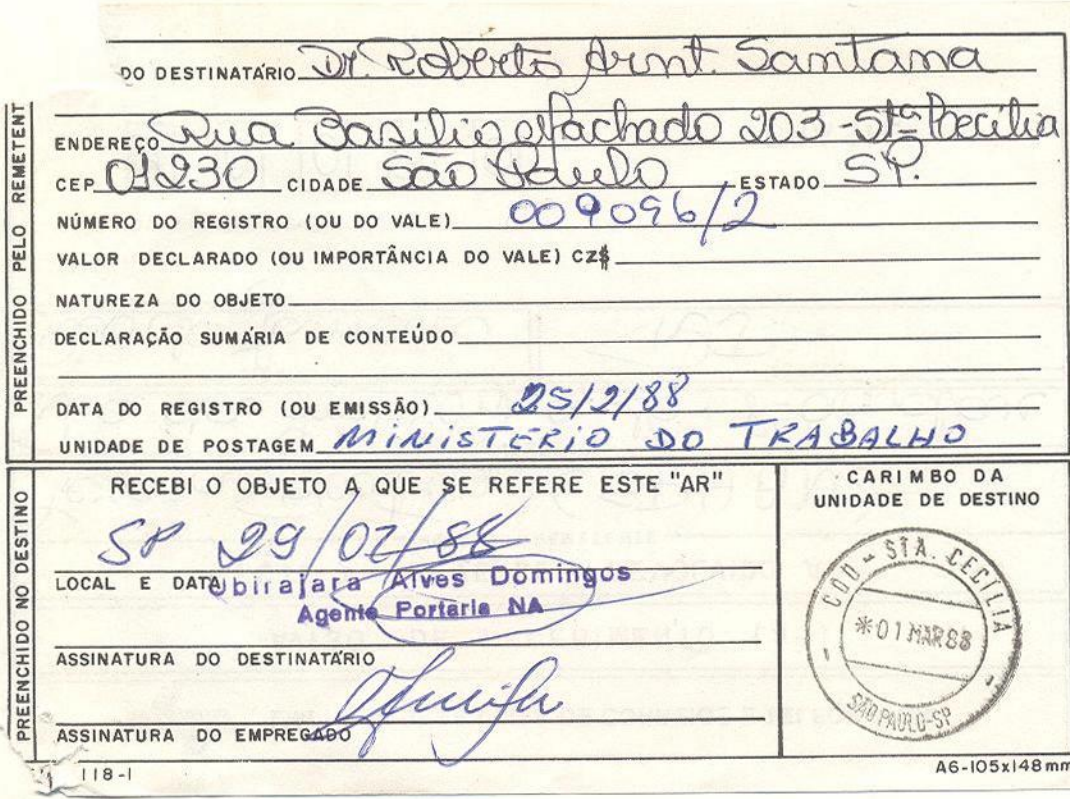 DO DESTINATÁRIO Dr. Roberto Arnt. Santana
PREENCHIDO PELO REMETENT
ENDEREÇO Rua Basílio Machado 203 - Stª Cecília
CEP 01230 CIDADE São Paulo ESTADO SP.
NÚMERO DO REGISTRO (OU DO VALE) 009096/2
VALOR DECLARADO (OU IMPORTÂNCIA DO VALE) CZ$
NATUREZA DO OBJETO
DECLARAÇÃO SUMÁRIA DE CONTEÚDO
DATA DO REGISTRO (OU EMISSÃO) 25/2/88
UNIDADE DE POSTAGEM MINISTERIO DO TRABALHO
PREENCHIDO NO DESTINO
RECEBI O OBJETO A QUE SE REFERE ESTE "AR"
SP 29/02/88
LOCAL E DATA
Ubirajara Alves Domingos
Agente Portaria NA
ASSINATURA DO DESTINATÁRIO
ASSINATURA DO EMPREGADO
CARIMBO DA
UNIDADE DE DESTINO
CDD - STA. CECÍLIA
*01 MAR 88
SÃO PAULO-SP
118-1
A6-105x148mm